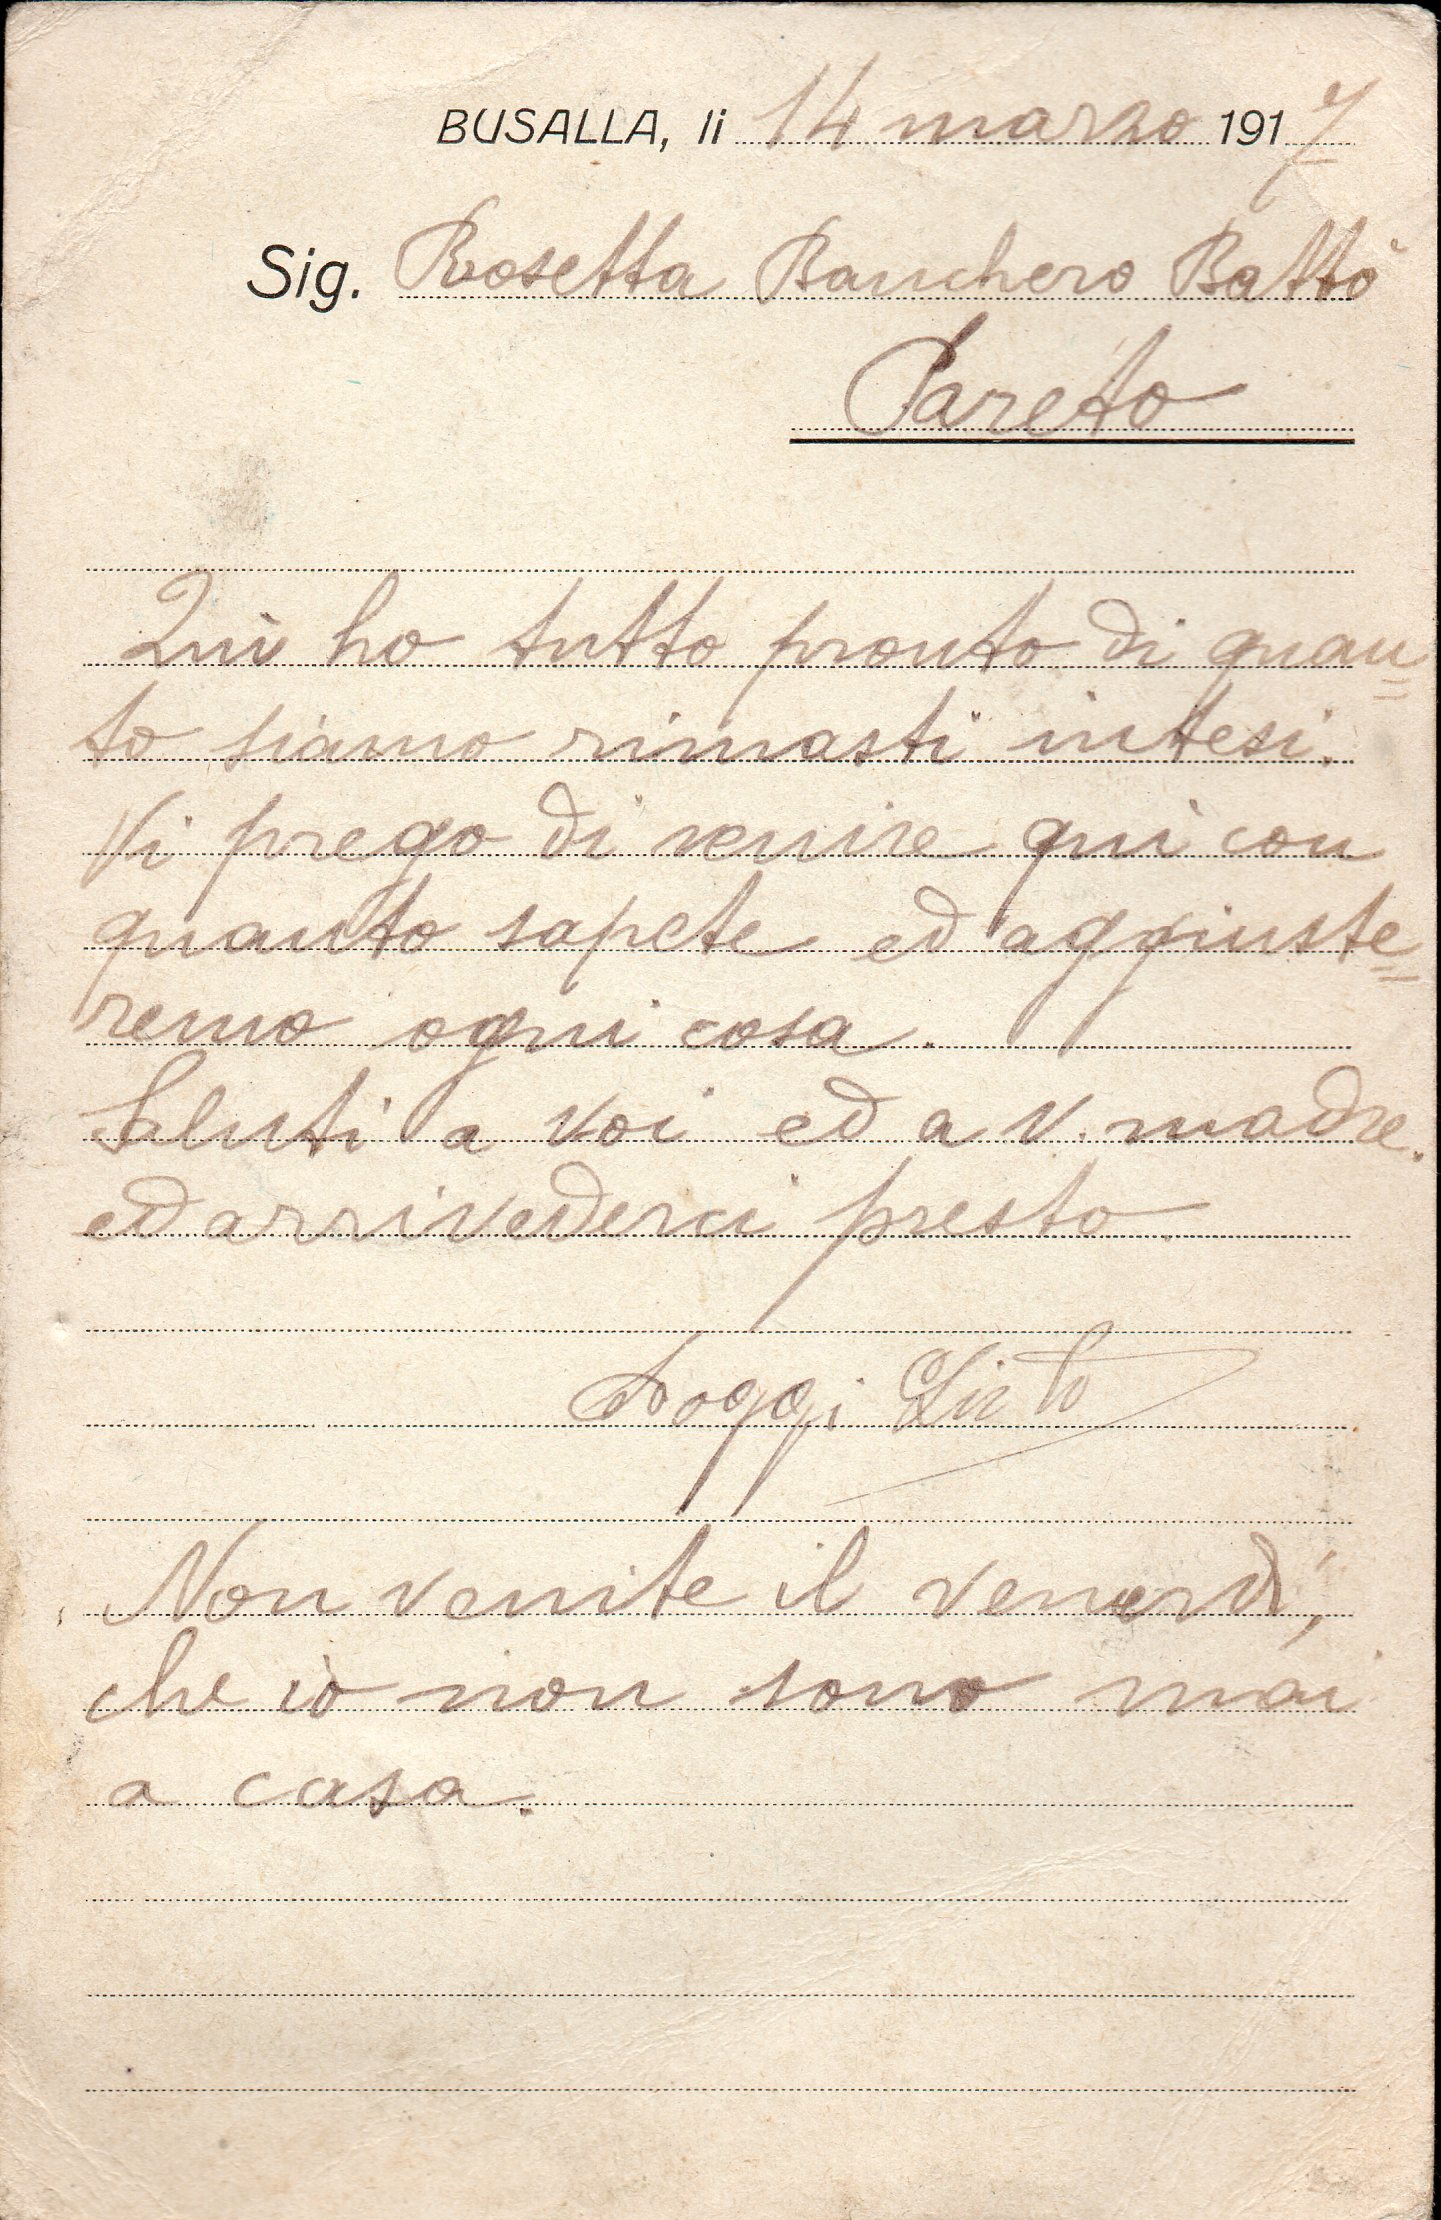 BUSALLA, li 14 marzo 1917
Sig. Rosetta Banchero Battò
Pareto
Qui ho tutto pronto di quan=
to siamo rimasti intesi.
Vi prego di venire qui con
quanto sapete ed aggiuste=
remo ogni cosa.
Saluti a voi ed a v. madre.
ed arrivederci presto
Non venite il venerdì,
che iò non sono mai
a casa.